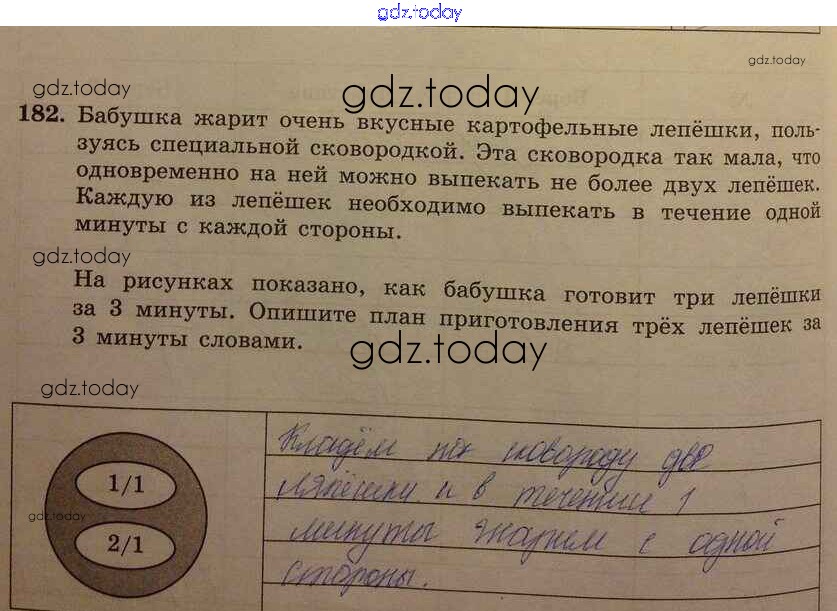 gdz.today
gdz.today
gdz.today
gdz.today
182. Бабушка жарит очень вкусные картофельные лепёшки, поль-
зуясь специальной сковородкой. Эта сковородка так мала, что
одновременно на ней можно выпекать не более двух лепёшек.
Каждую из лепёшек необходимо выпекать в течение одной
минуты с каждой стороны.
gdz.today
На рисунках показано, как бабушка готовит три лепёшки
за 3 минуты. Опишите план приготовления трёх лепёшек за
3 минуты словами.
gdz.today
gdz.today
Кладём на сковороду две
1/1
ляпёшки и в течении 1
gdz.today
минуты жарим с одной
2/1
стороны.